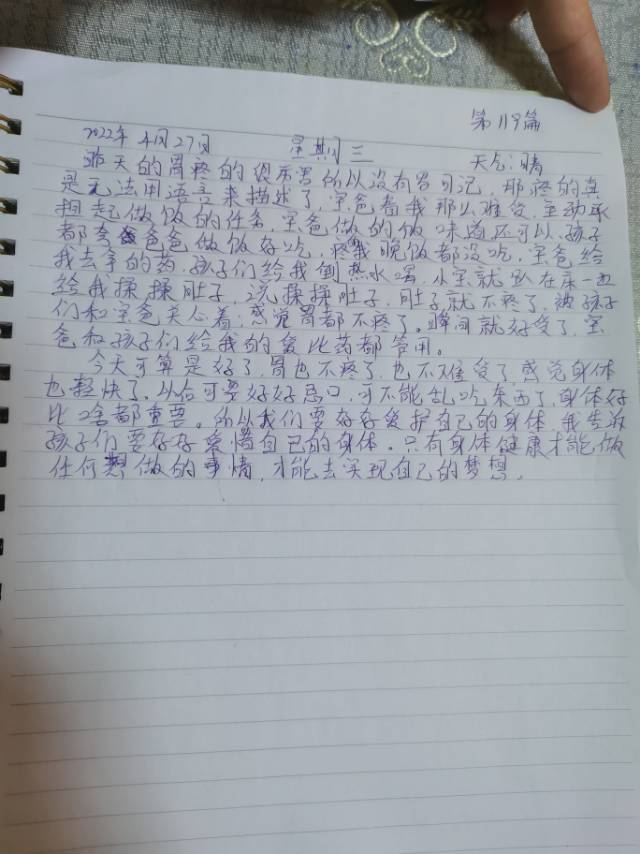 第119篇
2022年4月27日 星期三 天气:晴
昨天的胃疼的很厉害所以没有写日记,那疼的真
是无法用语言来描述了,宝爸看我那么难受,主动承
担起做饭的任务,宝爸做的饭味道还可以,孩子
都夸爸爸做饭好吃,疼我晚饭都没吃,宝爸给
我去拿的药,孩子们给我倒热水喝,小宝就趴在床一边
给我揉揉肚子,说揉揉肚子,肚子就不疼了,被孩子
们和宝爸关心着,感觉胃都不疼了。瞬间就好受了,宝
爸和孩子们给我的爱比药都管用。
今天可算是好了,胃也不疼了,也不难受了,感觉身体
也轻快了,以后可要好好忌口,可不能乱吃东西了,身体好
比啥都重要。所以我们要好好爱护自己的身体,我告诉
孩子们要好好爱惜自己的身体。只有身体健康才能做
任何想做的事情,才能去实现自己的梦想。